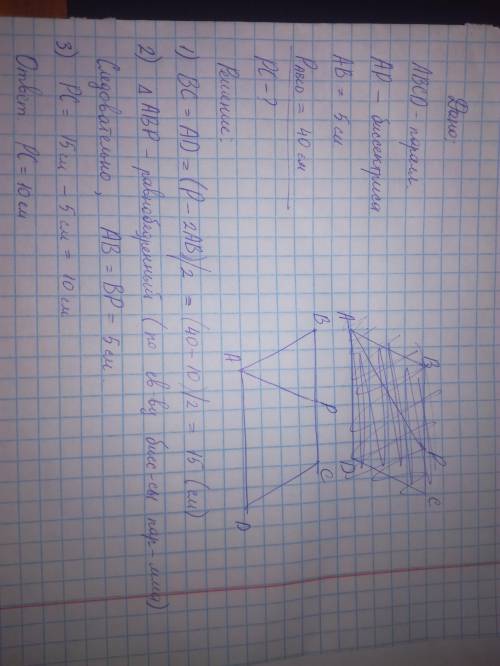 Дано:
ABCD - паралл.
AP - биссектриса
AB = 5 см
P ABCD = 40 см
PC - ?
Решение:
1) BC = AD = (P - 2AB)/2 = (40 - 10)/2 = 15 (см)
2) Δ ABP - равнобедренный (по св-ву бисс-сы пар-мма)
Следовательно, AB = BP = 5 см
3) PC = 15 см - 5 см = 10 см
Ответ PC = 10 см
B P C
A D
B P C
A D